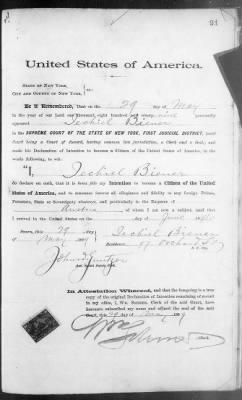 91
United States of America.
STATE OF NEW YORK,
CITY AND COUNTY OF NEW YORK, } ss.:
Be it Remembered, That on the 29 day of May
in the year of our Lord one thousand, eight hundred and ninety personally
appeared Jechiel Biener
in the SUPREME COURT OF THE STATE OF NEW YORK, FIRST JUDICIAL DISTRICT, (said
Court being a Court of Record, having common law jurisdiction, a Clerk and a Seal,) and
made his Declaration of Intention to become a Citizen of the United States of America, in the
words following, to wit:
"I, Jechiel Biener
do declare on oath, that it is bona fide my Intention to become a Citizen of the United
States of America, and to renounce forever all allegiance and fidelity to any foreign Prince,
Potentate, State or Sovereignty whatever, and particularly to the Emperor of
Austria of whom I am now a subject, and that
I arrived in the United States on the day of June
Sworn, this 29 day Jechiel Biener
of May Residence 67 Orchard St
N. Y. City
In Attestation Whereof, and that the foregoing is a true
copy of the original Declaration of Intention remaining of record
in my office, I, Wm. Sohmer, Clerk of the said Court, have
hereunto subscribed my name and affixed the seal of the said
Court, this 29 day of May
Wm Sohmer Clerk